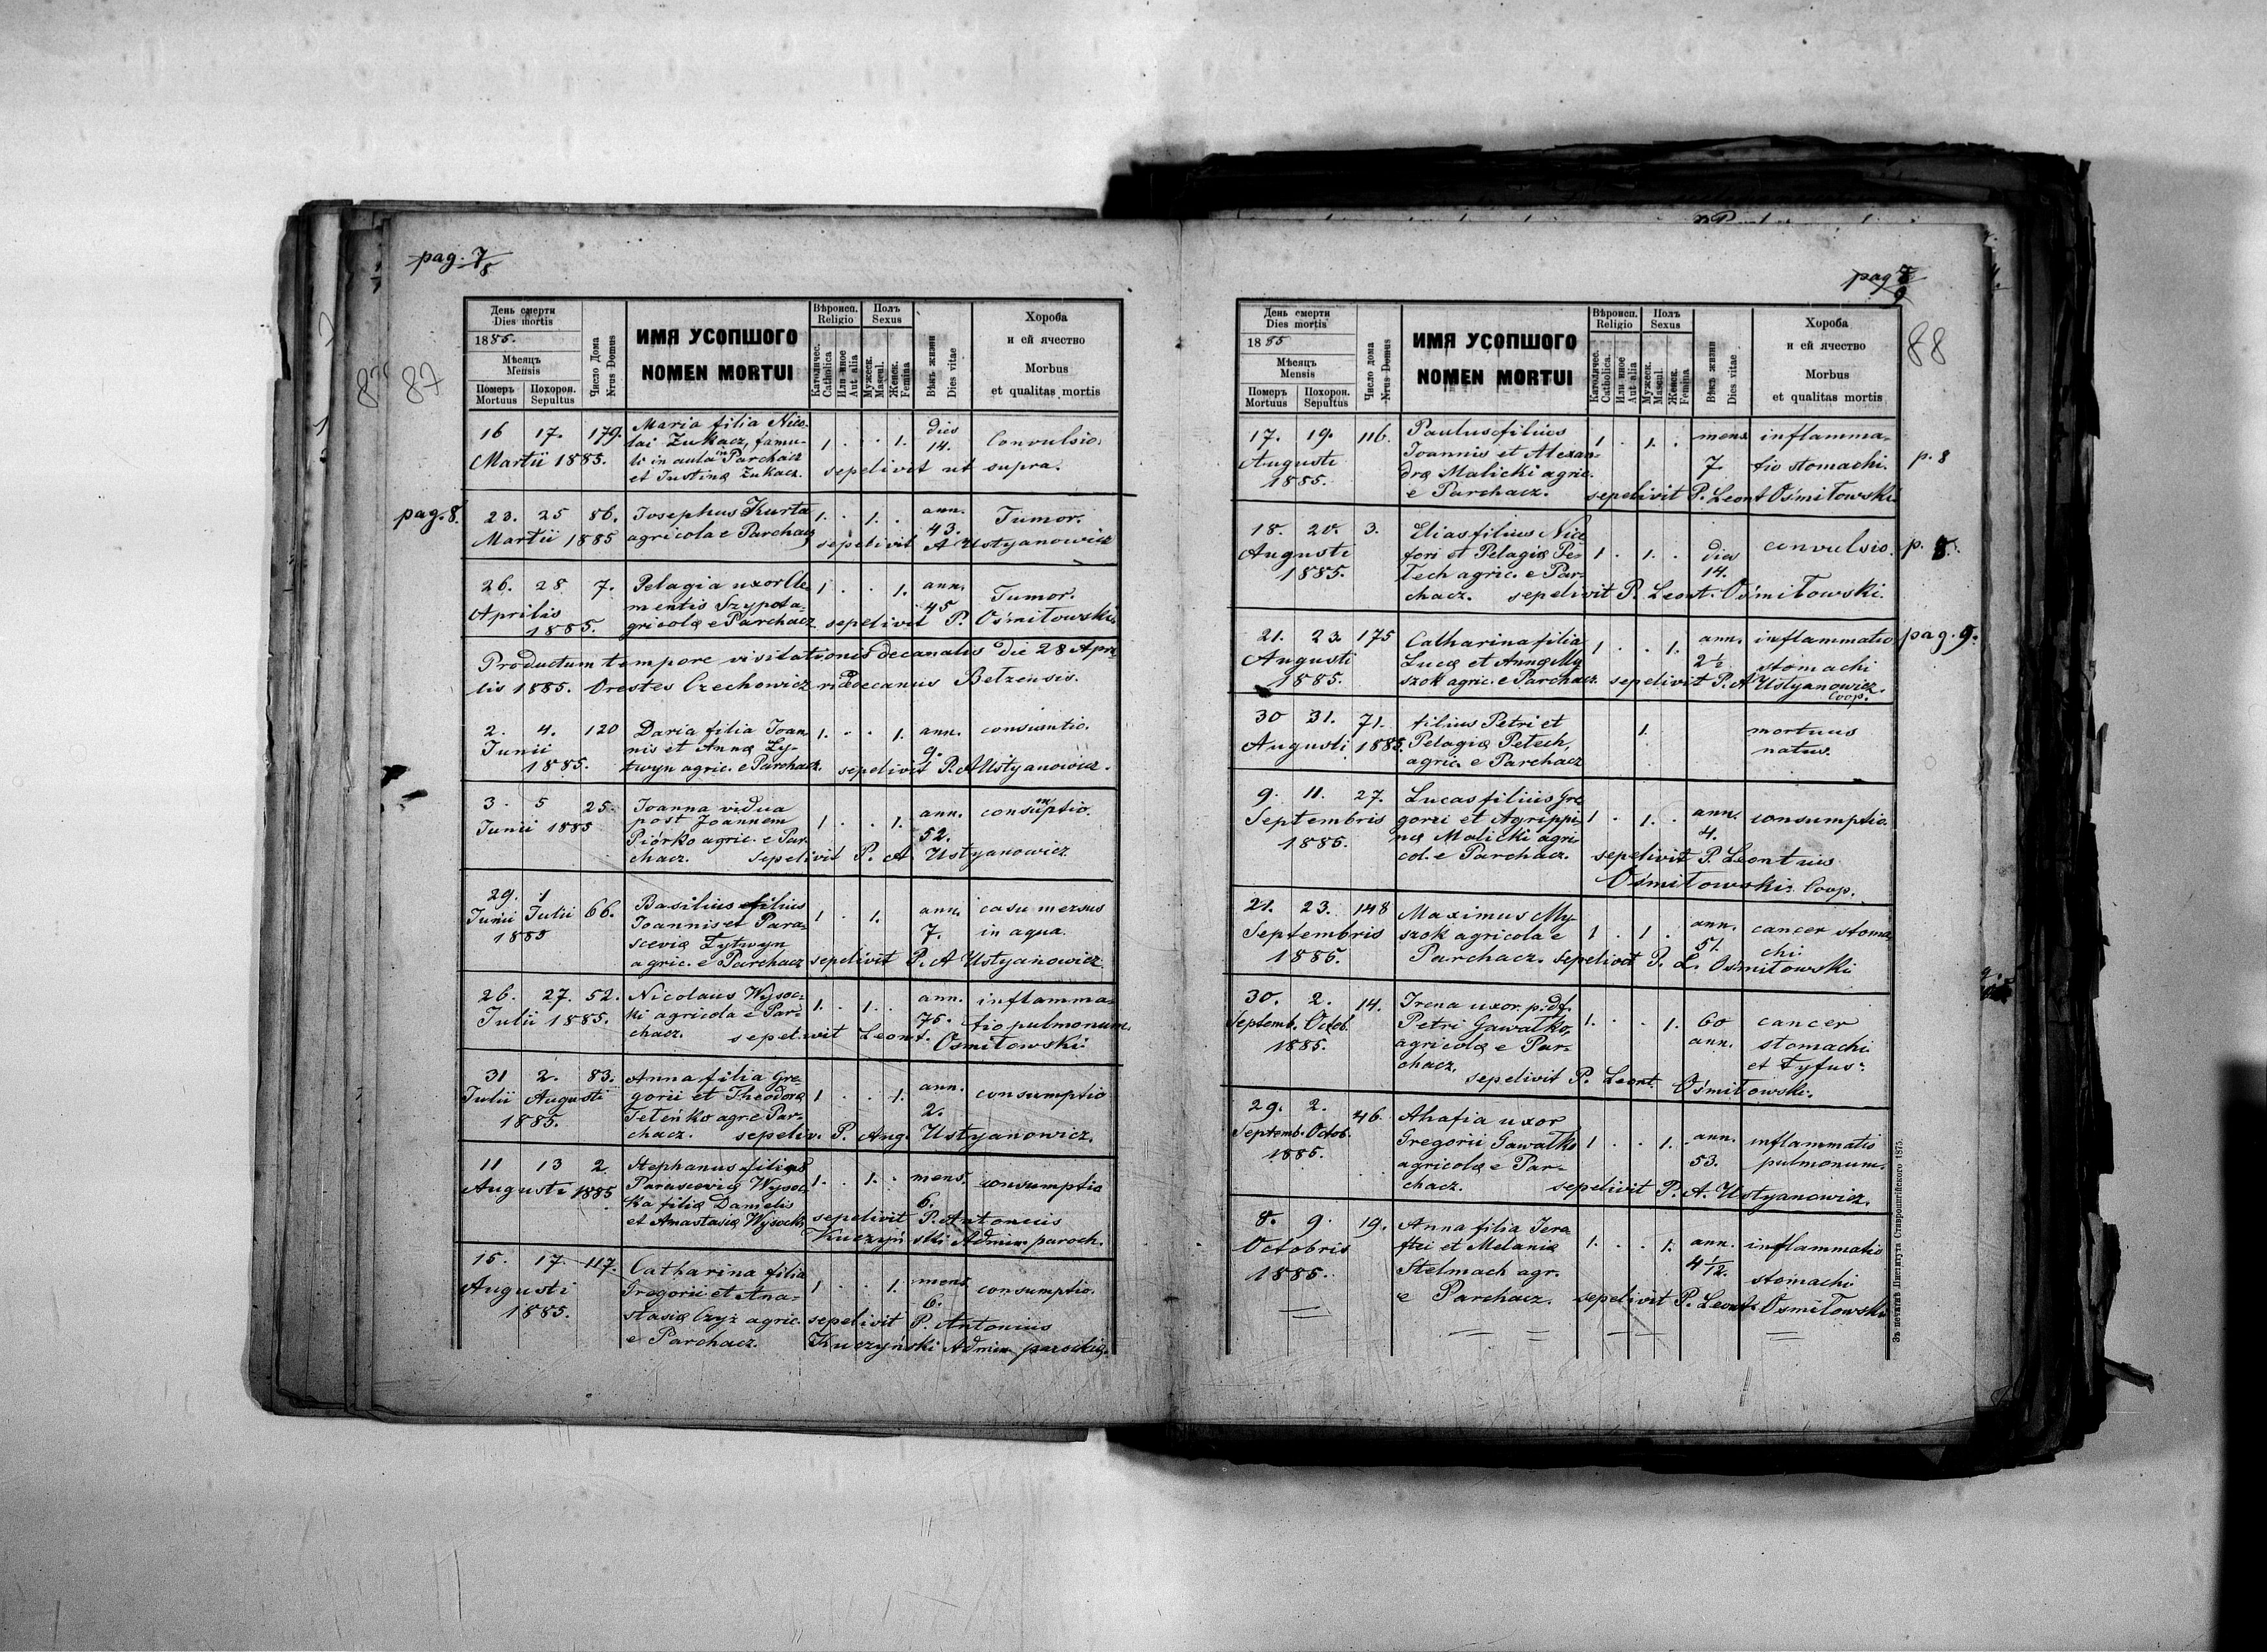 pag. 7/8
87
День смерти
Dies mortis
1885.
Мѣсяцъ
Mensis
Померъ
Mortuus
Похорон.
Sepultus
Число Дома
Nrus Domus
ИМЯ УСОПШОГО
NOMEN MORTUI
Вѣроисп.
Religio
Католичес.
Catholica
Или иное
Aut alia
Полъ
Sexus
Мужеск.
Mascul.
Женск.
Femina
Вѣкъ жизни
Dies vitae
Хороба
и ей ячество
Morbus
et qualitas mortis
16 17. 179. Maria filia Nico-
lai Zukacz, famu-
li in aula in Parchacz
et Justinæ Zukacz.
Martii 1885.
1 . . 1. dies
14. Convulsio.
sepelivit ut supra.
pag. 8.
23. 25 86. Josephus Kurta
Martii 1885 agricola e Parchacz
1. . 1. . ann.
43. Tumor.
sepelivit A Ustyanowicz
26. 28 7. Pelagia uxor Cle-
Aprilis mentis Szypota a-
1885. gricolæ e Parchacz
1 . . 1. ann.
45 Tumor.
sepelivit P. Ośmiłowski.
Productum tempore visitationis decanalis die 28 Apri-
lis 1885. Orestes Czechowicz vicedecanus Belzensis.
2. 4. 120 Daria filia Joan-
Junii nis et Annæ Ly-
1885. twyn agric. e Parchacz.
1. . . 1. ann.
9.
sepelivit P. A Ustyanowicz.
3. 5 25. Joanna vidua
Junii 1885 post Joannem
Piórko agric. e Par-
chacz.
1 . . 1. ann.
52. consumptio.
sepelivit P. A. Ustyanowicz.
29. 1
Junii Julii 66. Basilius filius
1885 Joannis et Para-
sceviæ Lytwyn
agric. e Parchacz
1 . 1. ann.
7. casu mersus
in aqua.
sepelivit P. A Ustyanowicz
26. 27. 52. Nicolaus Wysoc-
Julii 1885. ki agricola e Par-
chacz.
1. . 1. . ann.
75. inflamma-
tio pulmonum.
sepelivit Leont. Ośmiłowski.
31 2. 83. Anna filia Gre-
Julii Augusti gorii et Theodoræ
1885. Teteńko agr. e Par-
chacz.
1 . . 1. ann.
2. consumptio
sepeliv. P. Ang. Ustyanowicz.
11 13 2 Stephanus filius
Augusti 1885 Parasceviæ Wysoc-
ka filiæ Danielis
et Anastasiæ Wysocki
1. . 1. . mens.
6. consumptio
sepelivit P. Antonius
Kuczyński Admin. paroch.
15. 17. 117. Catharina filia
Augusti Gregorii et Ana-
1885. stasiæ Czyż agric.
e Parchacz.
1 . . 1. mens.
6. consumptio.
sepelivit P. Antonius
Kuczyński Admin. parochiæ.
pag 9
88
День смерти
Dies mortis
1885
Мѣсяцъ
Mensis
Померъ
Mortuus
Похорон.
Sepultus
Число дома
Nrus Domus
ИМЯ УСОПШОГО
NOMEN MORTUI
Вѣроисп.
Religio
Католичес.
Catholica.
Или иное
Aut alia
Полъ
Sexus
Мужеск.
Mascul.
Женск.
Femina
Вѣкъ жизни
Dies vitae
Хороба
и ей ячество
Morbus
et qualitas mortis
17. 19. 116. Paulus filius
Augusti Joannis et Alexan-
1885. dræ Malicki agric.
e Parchacz.
1 . 1. . mens
7. inflamma-
tio stomachi. p. 8
sepelivit P. Leont Ośmiłowski
18. 20. 3. Elias filius Nice-
Augusti fori et Pelagiæ Pe-
1885. tech agric. e Par-
chacz.
1 . 1. . dies
14. convulsio. p. 8.
sepelivit P. Leont. Ośmiłowski.
21. 23. 175 Catharina filia
Augusti Lucæ et Annæ My-
1885. szok agric. e Parchacz.
1 . . 1. ann.
2½ inflammatio
stomachi pag. 9.
sepelivit P. A Ustyanowicz.
Coop.
30 31. 71. filius Petri et
Augusti 1885. Pelagiæ Petech,
agric. e Parchacz
1. mortuus
natus.
9. 11. 27. Lucas filius Gre-
Septembris gorii et Agrippi-
1885. næ Malicki agri-
col. e Parchacz.
1 . 1. . ann.
4. consumptio.
sepelivit P. Leontius
Ośmiłowski Coop.
21. 23. 148 Maximus My-
Septembris szok agricola e
1885. Parchacz.
1 . 1 . ann.
51. cancer stoma-
chi.
sepelivit P. L. Ośmiłowski
30. 2. 14. Irena uxor p. df.
Septemb. Octob. Petri Gawałko,
1885. agricolæ e Par-
chacz,
1. . . 1. 60
ann. cancer
stomachi
et tyfus.
sepelivit P. Leont. Ośmiłowski.
29. 2. 46. Ahafia uxor
Septemb. Octob. Gregorii Gawałko
1885. agricolæ e Par-
chacz.
1 . . 1. ann.
53. inflammatio
pulmonum.
sepelivit P. A. Ustyanowicz.
8. 9. 19. Anna filia Jera-
Octobris ftei et Melaniæ
1885. Stelmach agr.
e Parchacz.
1. . . 1. ann.
4 1/12. inflammatio
stomachi
sepelivit P. Leont. Ośmiłowski
Зъ печатнѣ Института Ставропигійского 1875.